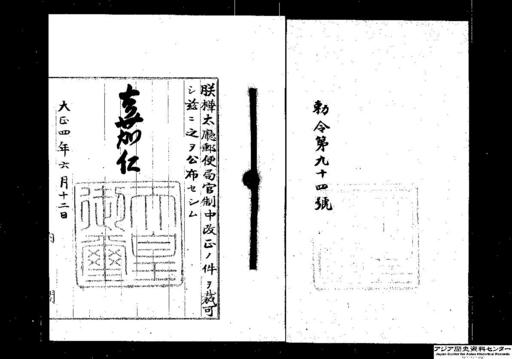 勅令第九十四號
朕樺太廳郵便局官制中改正ノ件ヲ裁可
シ茲ニ之ヲ公布セシム
嘉仁
天皇御璽
大正四年六月十二日
内閣
アジア歴史資料センター
Japan Center for Asian Historical Records